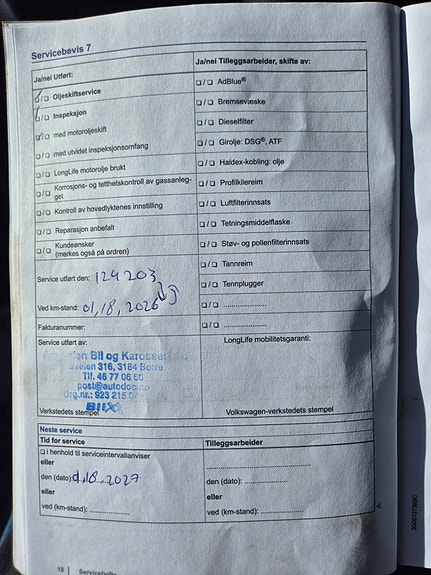 Servicebevis 7
Ja/nei Utført:
Ja/nei Tilleggsarbeider, skifte av:
☐/☐ Oljeskiftservice
☐/☐ AdBlue®
☐/☐ Inspeksjon
☐/☐ Bremsevæske
☐/☐ med motoroljeskift
☐/☐ Dieselfilter
☐/☐ med utvidet inspeksjonsomfang
☐/☐ Girolje: DSG®, ATF
☐/☐ LongLife motorolje brukt
☐/☐ Haldex-kobling: olje
☐/☐ Korrosjons- og tetthetskontroll av gassanleg-
get
☐/☐ Profilkilereim
☐/☐ Kontroll av hovedlyktenes innstilling
☐/☐ Luftfilterinnsats
☐/☐ Reparasjon anbefalt
☐/☐ Tetningsmiddelflaske
☐/☐ Kundeønsker
(merkes også på ordren)
☐/☐ Støv- og pollenfilterinnsats
☐/☐ Tannreim
Service utført den: 129203
☐/☐ Tennplugger
Ved km-stand: 01,18,2026
☐/☐ ....................
Fakturanummer:
☐/☐ ....................
Service utført av:
LongLife mobilitetsgaranti:
Bil og Karosseri
316, 3184 Borre
Tlf. 46 77 06 60
post@autodoc.no
Org.nr.: 923 215
BilXtra
Verkstedets stempel
Volkswagen-verkstedets stempel
Neste service
Tid for service
Tilleggsarbeider
☐ I henhold til serviceintervallanviser
eller
....................
den (dato): 1,18,2027
den (dato): ....................
eller
eller
ved (km-stand): ....................
ved (km-stand): ....................
18 | Servicehefte